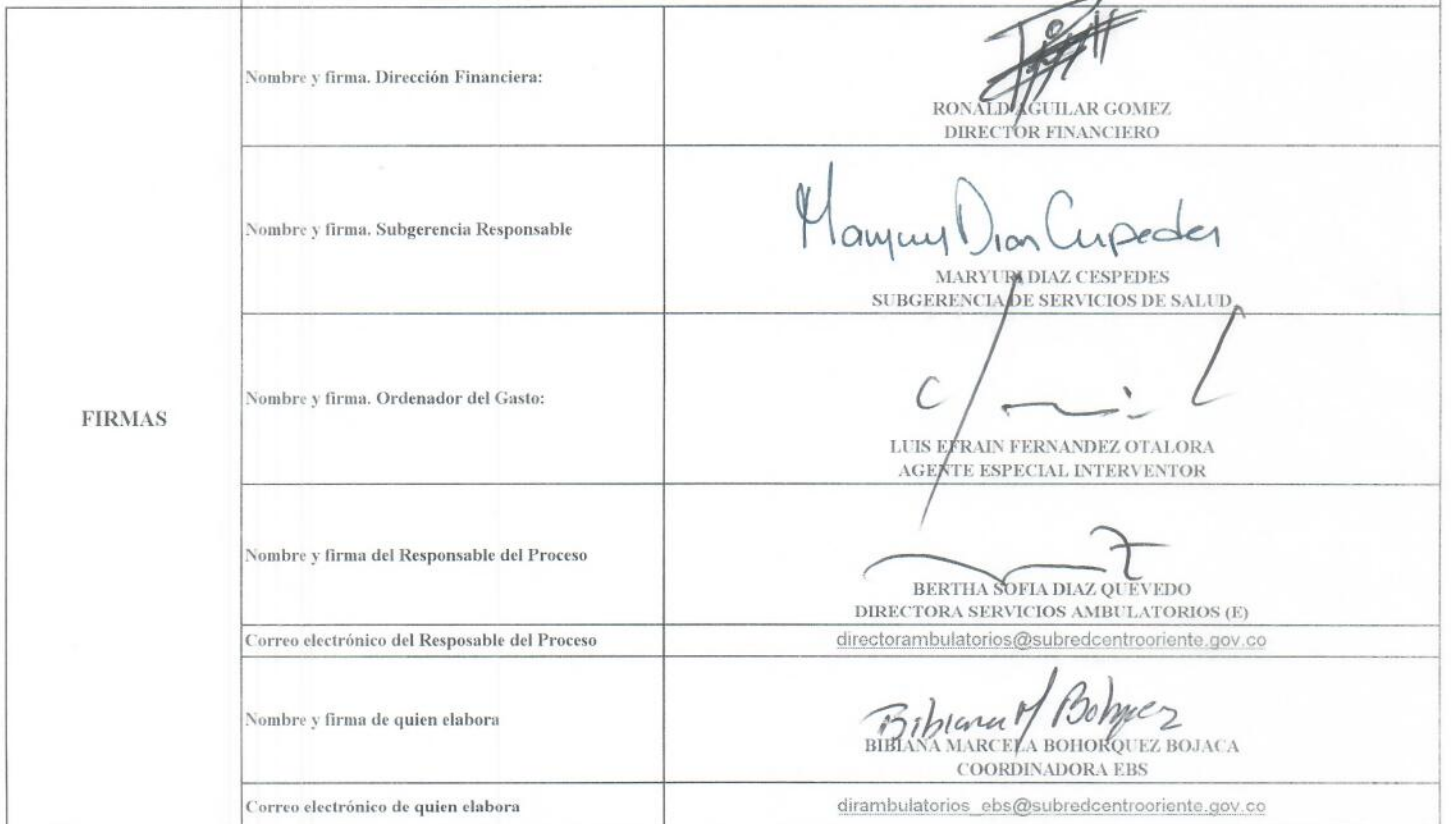 Nombre y firma. Dirección Financiera:
RONALD AGUILAR GOMEZ
DIRECTOR FINANCIERO
Nombre y firma. Subgerencia Responsable
Maryury Diaz Cespedes
MARYURI DIAZ CESPEDES
SUBGERENCIA DE SERVICIOS DE SALUD
FIRMAS
Nombre y firma. Ordenador del Gasto:
LUIS EFRAIN FERNANDEZ OTALORA
AGENTE ESPECIAL INTERVENTOR
Nombre y firma del Responsable del Proceso
BERTHA SOFIA DIAZ QUEVEDO
DIRECTORA SERVICIOS AMBULATORIOS (E)
Correo electrónico del Resposable del Proceso
directorambulatorios@subredcentrooriente.gov.co
Nombre y firma de quien elabora
Bibiana M Bohorquez
BIBIANA MARCELA BOHORQUEZ BOJACA
COORDINADORA EBS
Correo electrónico de quien elabora
dirambulatorios_ebs@subredcentrooriente.gov.co